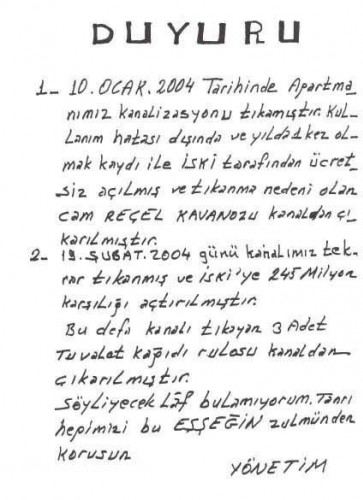 DUYURU
1_ 10.OCAK.2004 Tarihinde Apartma
nımız kanalizasyonu tıkamıştır. Kul-
lanım hatası dışında ve yılda 1 kez ol-
mak kaydı ile İSKİ tarafından ücret
siz açılmış ve tıkanma nedeni olan
cam REÇEL KAVANOZU kanaldan çı
karılmıştır.
2- 19.ŞUBAT.2004 günü kanalımız tek-
rar tıkanmış ve İski'ye 245 Milyon
karşılığı açtırılmıştır.
Bu defa kanalı tıkayan 3 Adet
Tuvalet kağıdı rulosu kanaldan
çıkarılmıştır.
Söyliyecek Lâf bulamıyorum. Tanrı
hepimizi bu EŞŞEĞİN zulmünden
korusun
YÖNETİM